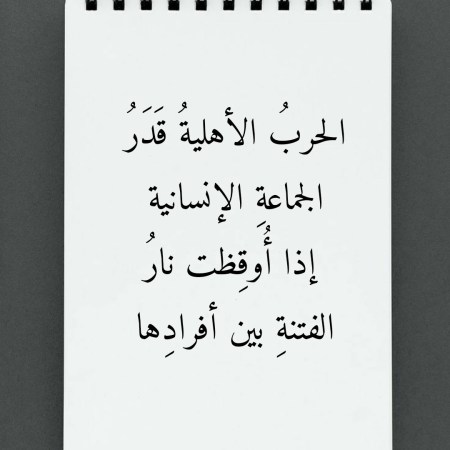 الحربُ الأهليةُ قَدَرُ
الجماعةِ الإنسانية
إذا أُوقِظت نارُ
الفتنةِ بين أفرادِها